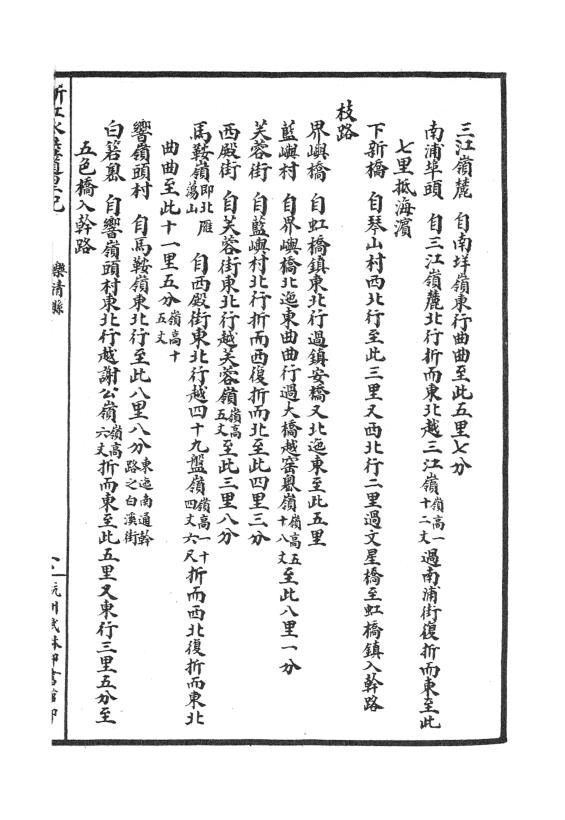 三江嶺麓　自南垟嶺東行曲曲至此五里七分
南浦埠頭　自三江嶺麓北行折而東北越三江嶺嶺高一十二丈過南浦街復折而東至此
七里抵海濱
下新橋　自琴山村西北行至此三里又西北行二里過文星橋至虹橋鎮入幹路
枝路
界嶼橋　自虹橋鎮東北行過鎮安橋又北迤東至此五里
藍嶼村　自界嶼橋北迤東曲曲行過大橋越窑嶴嶺嶺高五十八丈至此八里一分
芙蓉街　自藍嶼村北行折而西復折而北至此四里三分
西殿街　自芙蓉街東北行越芙蓉嶺嶺高五丈至此三里八分
馬鞍嶺即北雁蕩山　自西殿街東北行越四十九盤嶺嶺高一十四丈六尺折而西北復折而東北
曲曲至此十一里五分嶺高十五丈
響嶺頭村　自馬鞍嶺東北行至此八里八分東迤南通幹路之白溪街
白箬嶴　自響嶺頭村東北行越謝公嶺嶺高六丈折而東至此五里又東行三里五分至
五色橋入幹路
浙江水陸道里記
樂清縣
杭州武林印書館印